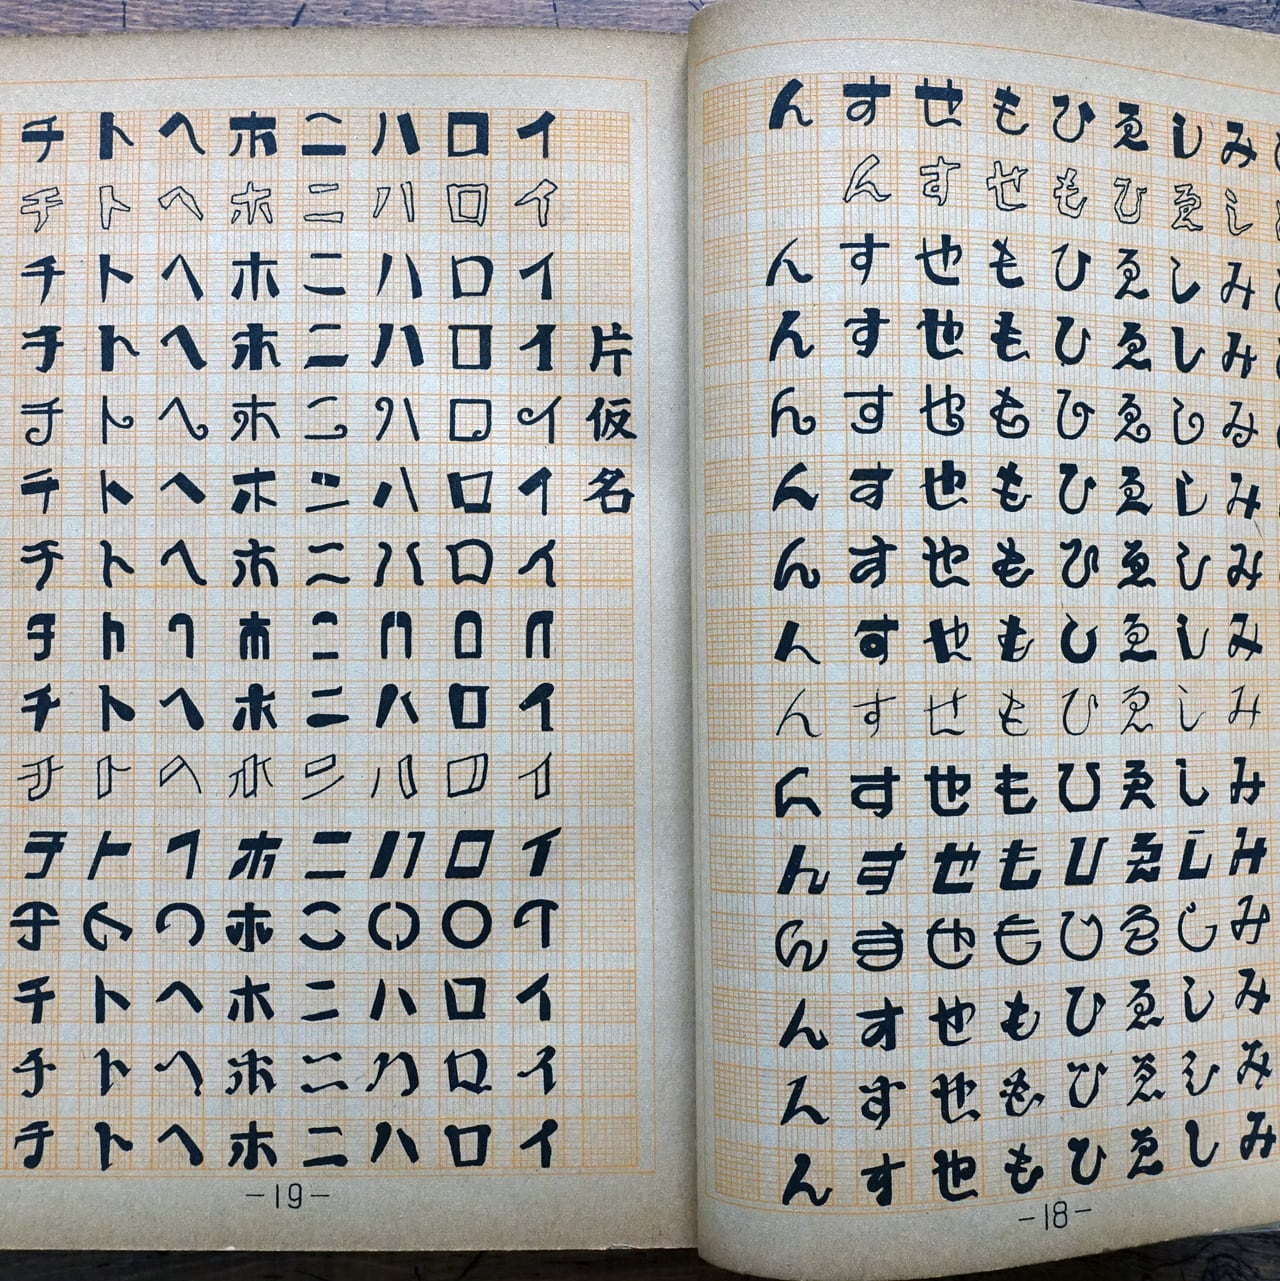 みしゑひもせすん
しゑひもせすん
みしゑひもせすん
みしゑひもせすん
みしゑひもせすん
みしゑひもせすん
みしゑひもせすん
みしゑひもせすん
みしゑひもせすん
みしゑひもせすん
みしゑひもせすん
みしゑひもせすん
みしゑひもせすん
みしゑひもせすん
みしゑひもせすん
-18-
片仮名
イロハニホヘトチ
イロハニホヘトチ
イロハニホヘトチ
イロハニホヘトチ
イロハニホヘトチ
イロハニホヘトチ
イロハニホヘトチ
イロハニホヘトチ
イロハニホヘトチ
イロハニホヘトチ
イロハニホヘトチ
イロハニホヘトチ
イロハニホヘトチ
イロハニホヘトチ
イロハニホヘトチ
-19-